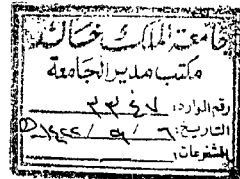 جامعة الملك خالد
مكتب مدير الجامعة
رقم الوارد: ٣٣٤٧
التاريخ: ٦ / ٩ / ١٤٢٢
المشفوعات: